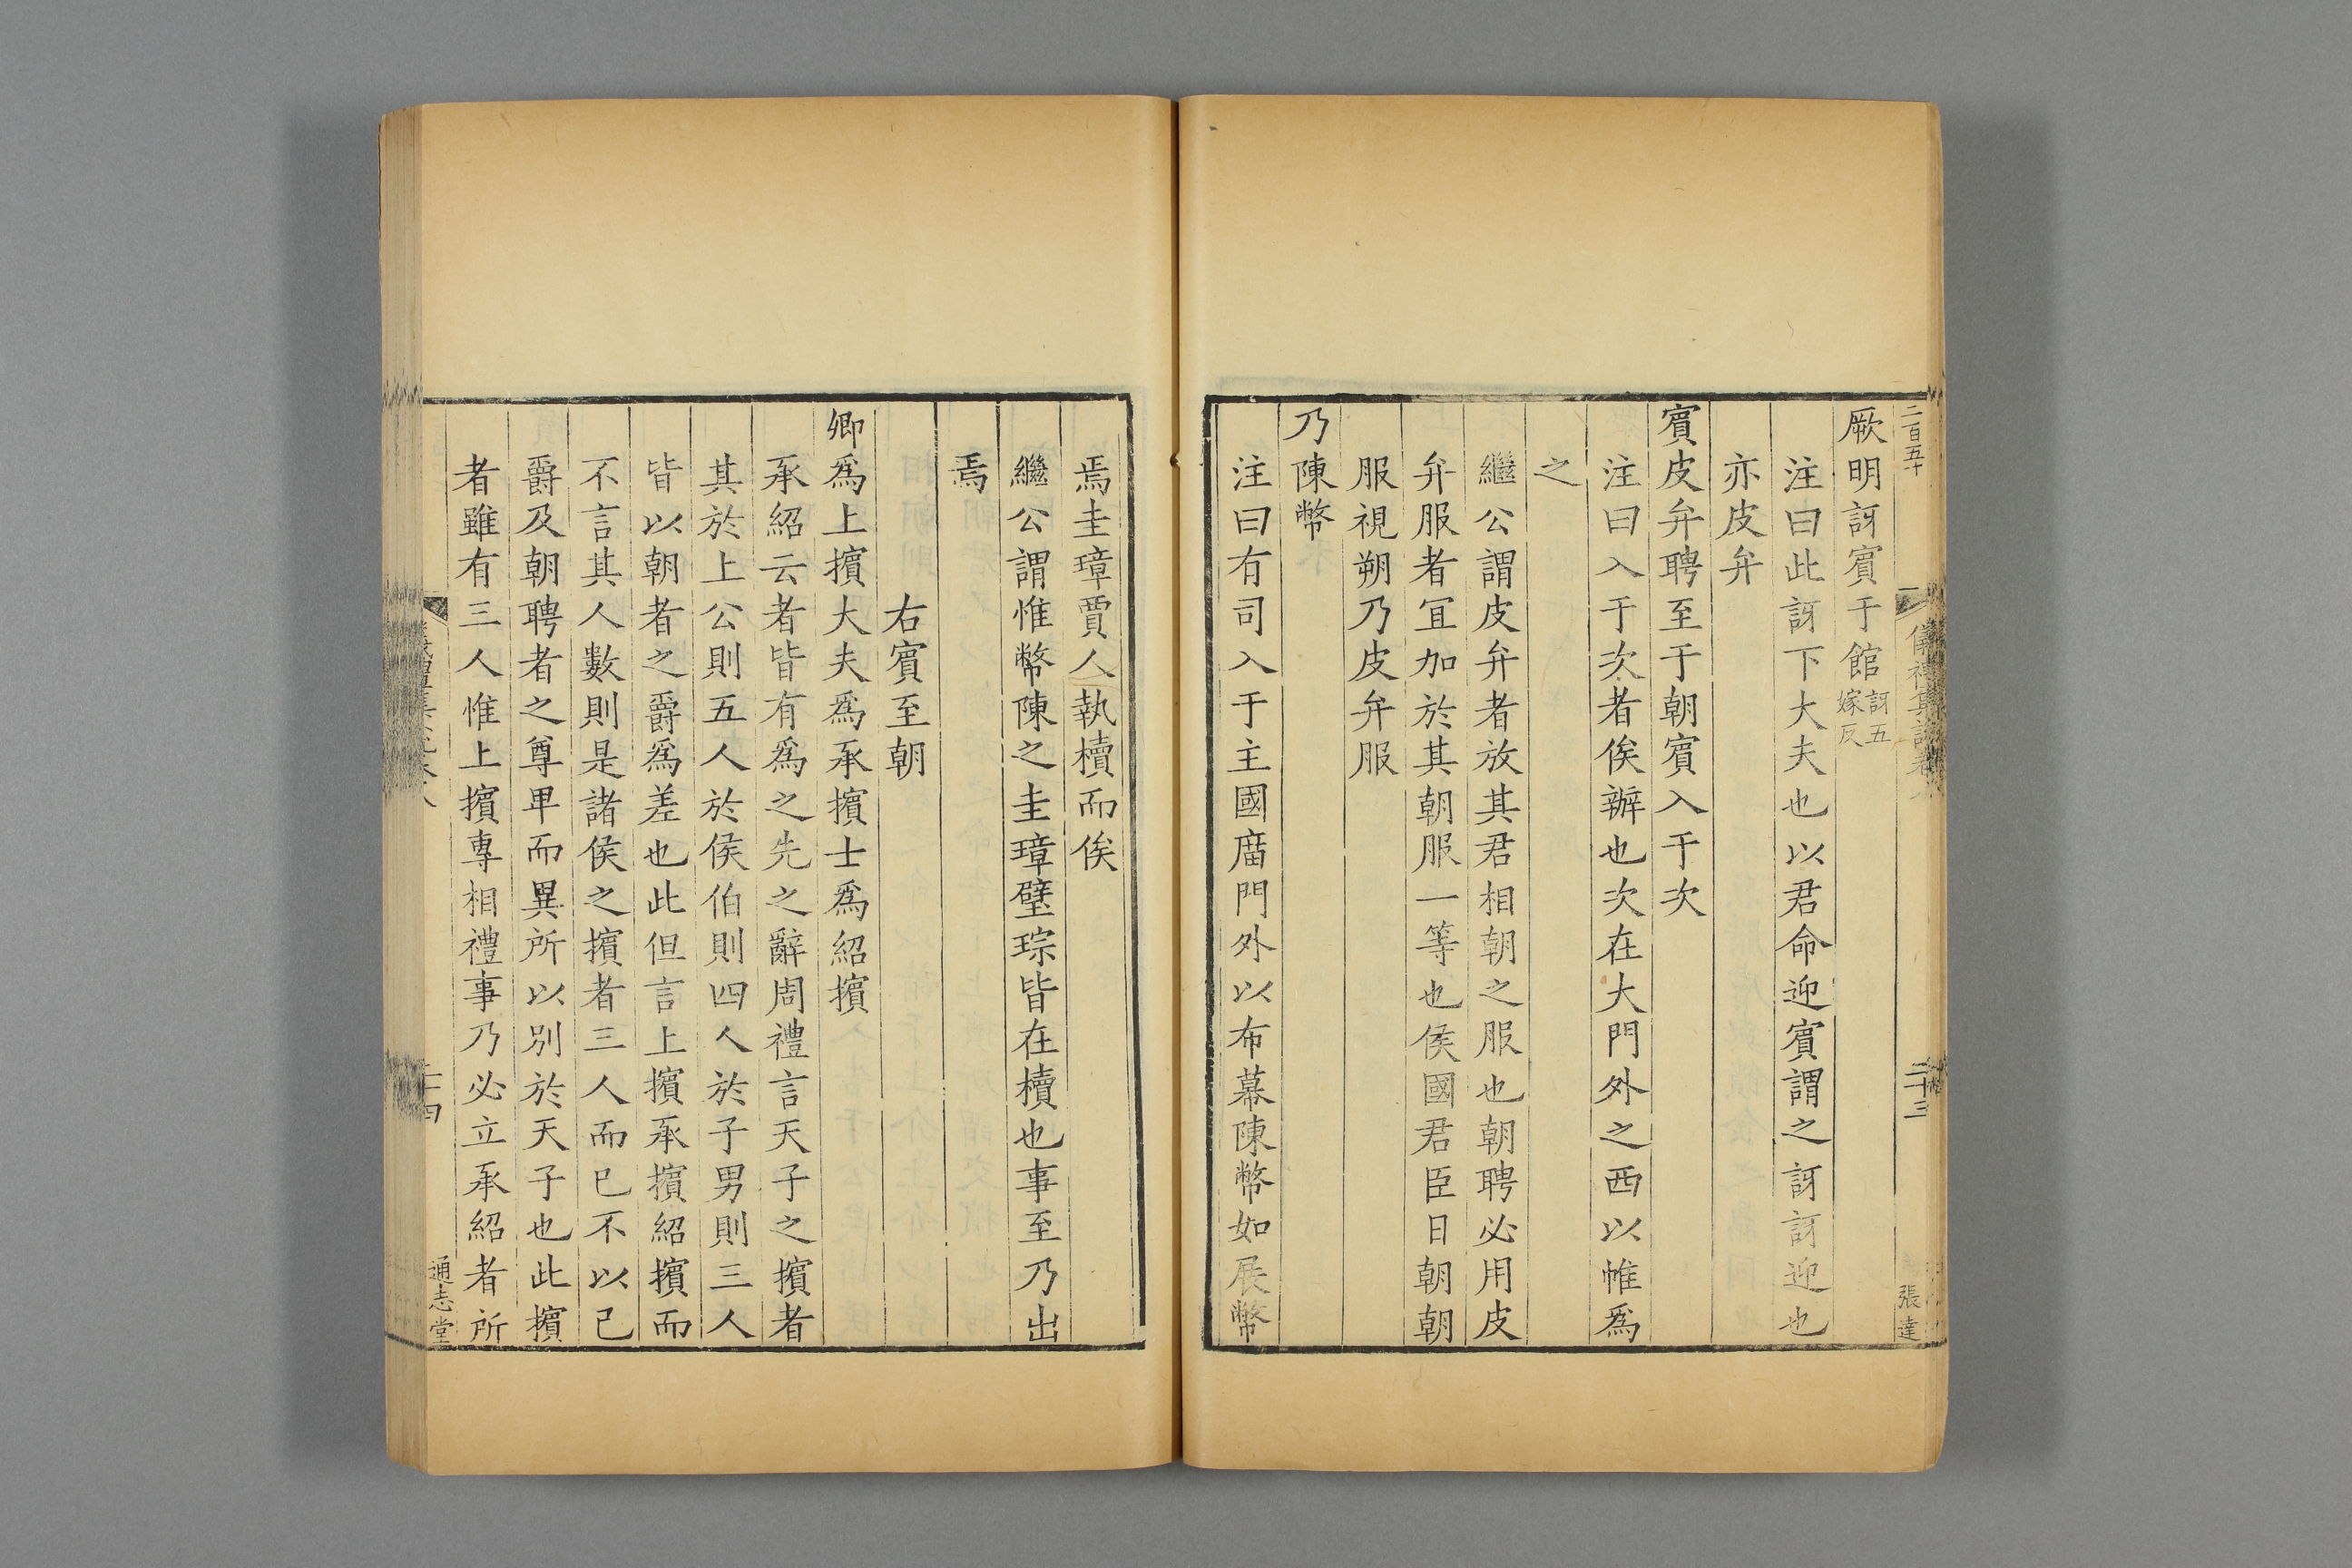 二百五十
二十三
張達
厥明訝賓于館訝五嫁反
注曰此訝下大夫也以君命迎賓謂之訝訝迎也
亦皮弁
賓皮弁聘至于朝賓入于次
注曰入于次者俟辦也次在大門外之西以帷爲
之
繼公謂皮弁者放其君相朝之服也朝聘必用皮
弁服者冝加於其朝服一等也侯國君臣日朝朝
服視朔乃皮弁服
乃陳幣
注曰有司入于主國廟門外以布幕陳幣如展幣
焉圭璋賈人執櫝而俟
繼公謂惟幣陳之圭璋璧琮皆在櫝也事至乃出
焉
右賓至朝
卿爲上擯大夫爲承擯士爲紹擯
承紹云者皆有爲之先之辭周禮言天子之擯者
其於上公則五人於侯伯則四人於子男則三人
皆以朝者之爵爲差也此但言上擯承擯紹擯而
不言其人數則是諸侯之擯者三人而已不以己
爵及朝聘者之尊卑而異所以別於天子也此擯
者雖有三人惟上擯專相禮事乃必立承紹者所
通志堂